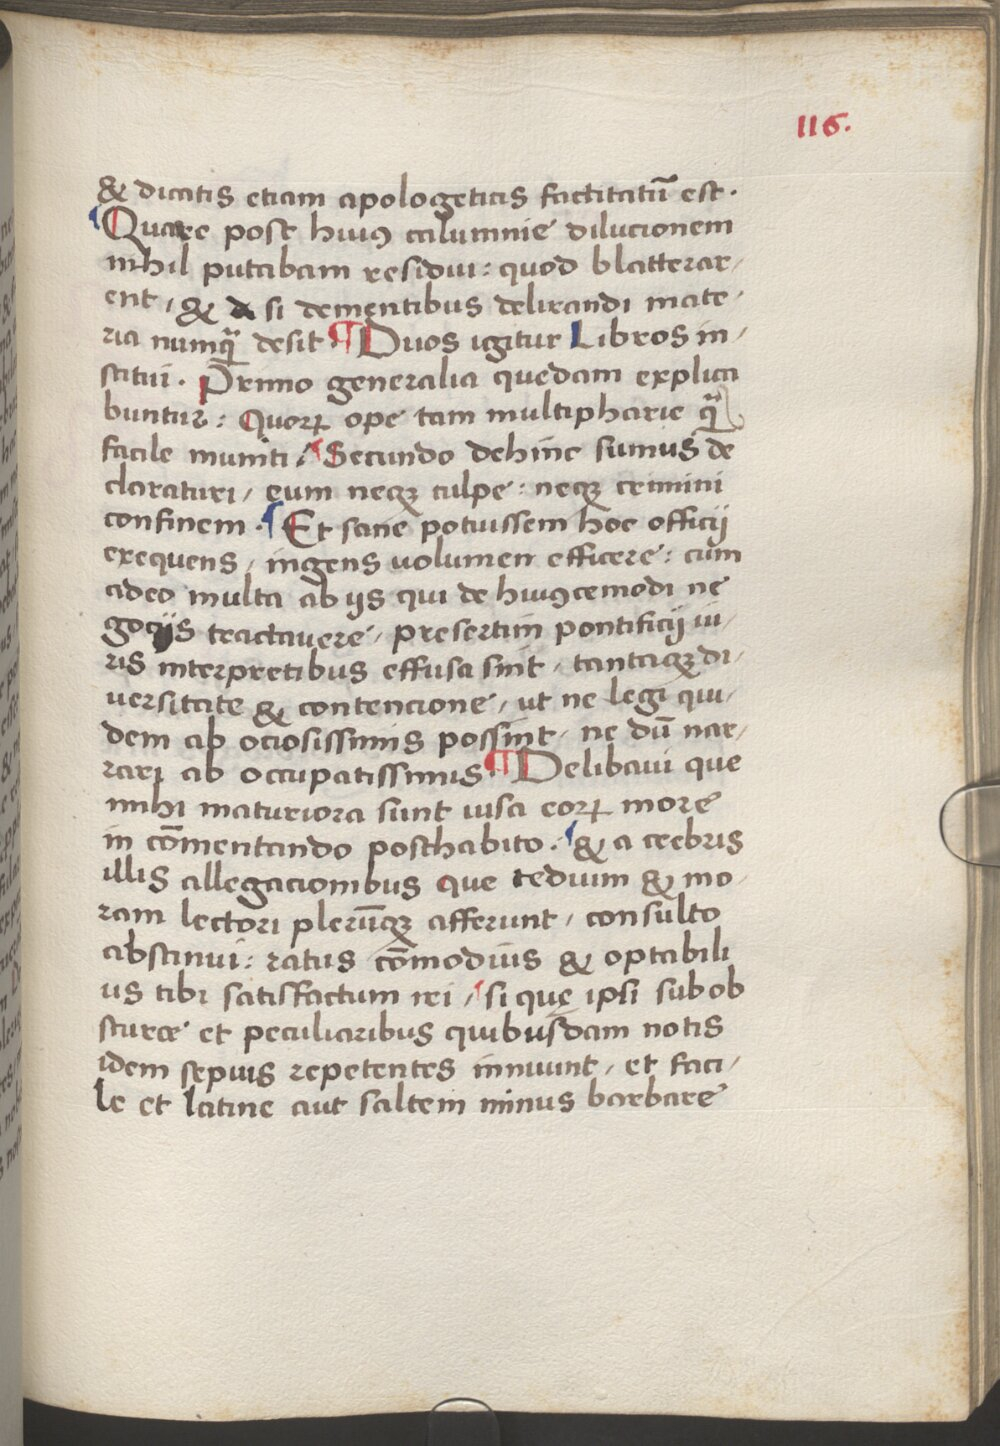 116.
& dicatis etiam apologeticis factitatū est.
Quare post huiꝰ calumnie dilucionem
nihil putabam residui: quod blatterar/
ent, & si dementibus delirandi mate/
ria numqᷓ desit. ¶ Duos igitur Libros in/
stitui. Primo generalia quedam explica
buntur: Quorꝝ ope tam multipharie qᷓ
facile muniti. Secundo dehinc sumus de
claraturi, eum neqꝫ culpe: neqꝫ crimini
confinem. Et sane potuissem hoc officij
exequens, ingens uolumen efficere: cum
adeo multa ab ijs qui de huiꝰcemodi ne
gocijs tractauere, presertim pontificij iu/
ris interpretibus effusa sint, tantaqꝫ di/
uersitate & contencione, ut ne legi qui/
dem ab ociosissimis possint, ne dū nar/
rarj ab occupatissimis. ¶ Delibaui que
mihi maturiora sunt uisa eorꝝ more
in cōmentando posthabito. & a crebris
illis allegacionibus que tedium & mo/
ram lectori plerūqꝫ afferunt, consulto
abstinui: ratus cōmodius & optabili
us tibi satisfactum iri, si quę ipsi sub ob
scuræ et peculiaribus quibusdam notis
idem sepius repetentes innuunt, et faci/
le et latine aut saltem minus barbare